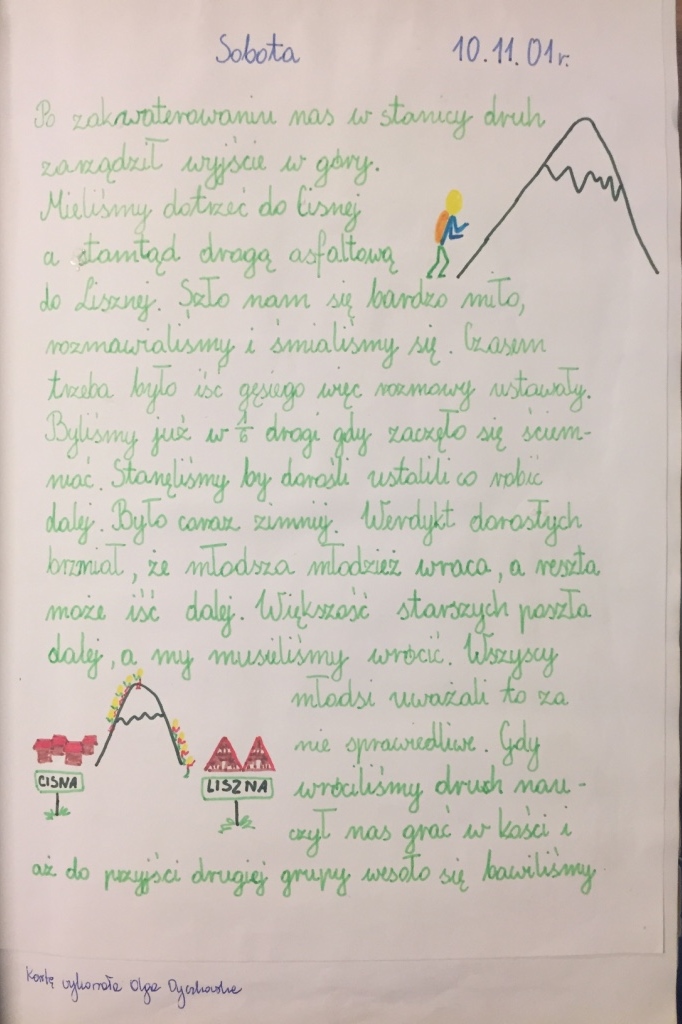 Sobota 10.11.01r.
Po zakwaterowaniu nas w stanicy druh
zarządził wyjście w góry.
Mieliśmy dotrzeć do Cisnej
a stamtąd drogą asfaltową
do Lisznej. Szło nam się bardzo miło,
rozmawialismy i śmialiśmy się. Czasem
trzeba było iść gęsiego więc rozmowy ustawały.
Byliśmy już w 1/6 drogi gdy zaczęło się ściem-
niać. Stanęliśmy by dorośli ustalili co robić
dalej. Było coraz zimniej. Werdykt dorosłych
brzmiał, że młodsza młodzież wraca, a reszta
może iść dalej. Większość starszych poszła
dalej, a my musieliśmy wrócić. Wszyscy
młodsi uważali to za
nie sprawiedliwe. Gdy
wróciliśmy druh nau-
czył nas grać w kości i
aż do przyjści drugiej grupy wesoło się bawiliśmy
CISNA
LISZNA
Kartę wykonała Olga